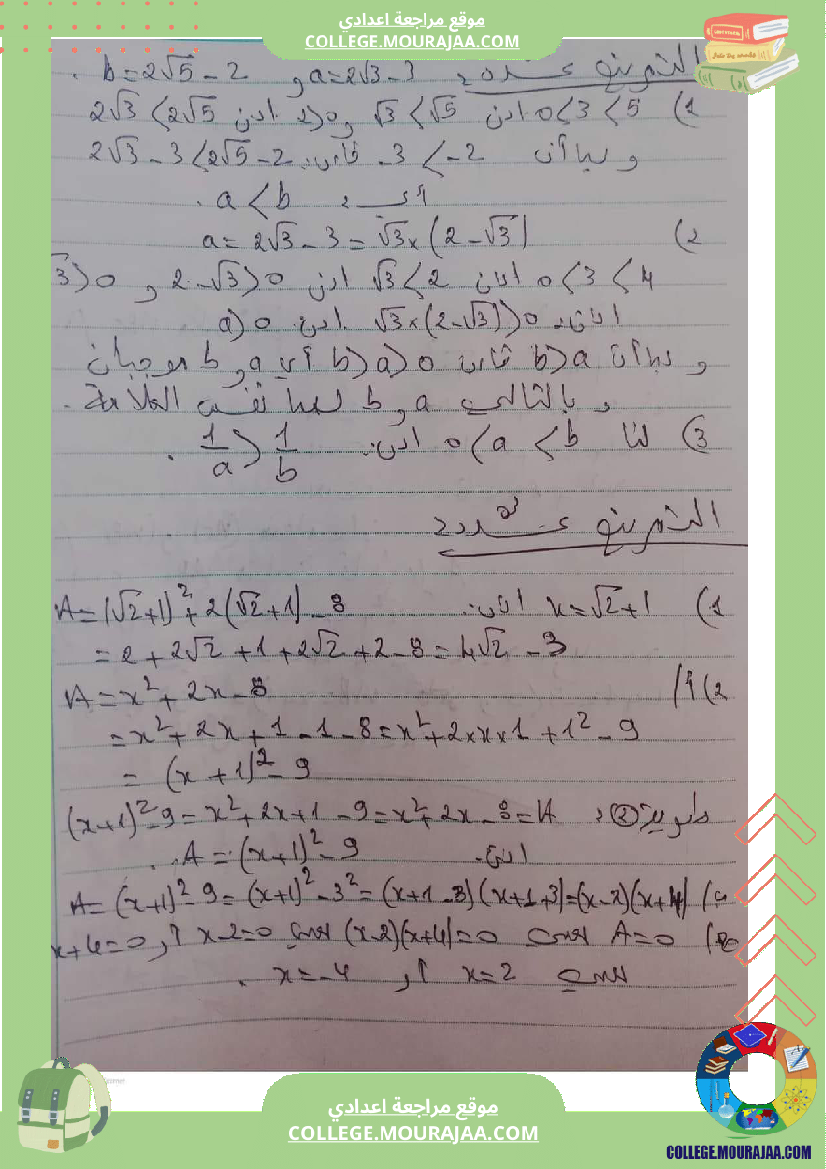 موقع مراجعة اعدادي
COLLEGE.MOURAJAA.COM
التمرين عدد 2 a=2√3-3 و b=2√5-2 .
1) 0<3<5 اذن √3<√5 و 2>0 اذن 2√3<2√5
و بما أن -3<-2 فإن 2√3-3<2√5-2
أي a<b .
2) a=2√3-3=√3×(2-√3)
0<3<4 اذن √3<2 اذن 2-√3>0 و √3>0
اذن √3×(2-√3)>0 اذن a>0
و بما أن b>a فإن b>a>0 أي a و b موجبان
و بالتالي a و b لهما نفس العلامة .
3) لنا 0<a<b اذن 1/a>1/b .
التمرين عدد
1) x=√2+1 اذن A=(√2+1)²+2(√2+1)-8
=2+2√2+1+2√2+2-8=4√2-3
2) أ/ A=x²+2x-8
=x²+2x+1-1-8=x²+2×x×1+1²-9
=(x+1)²-9
طريقة ② : (x+1)²-9=x²+2x+1-9=x²+2x-8=A
اذن A=(x+1)²-9 .
ب) A=(x+1)²-9=(x+1)²-3²=(x+1-3)(x+1+3)=(x-2)(x+4)
A=0 يعني (x-2)(x+4)=0 يعني x-2=0 أو x+4=0
يعني x=2 أو x=-4 .
موقع مراجعة اعدادي
COLLEGE.MOURAJAA.COM
COLLEGE.MOURAJAA.COM